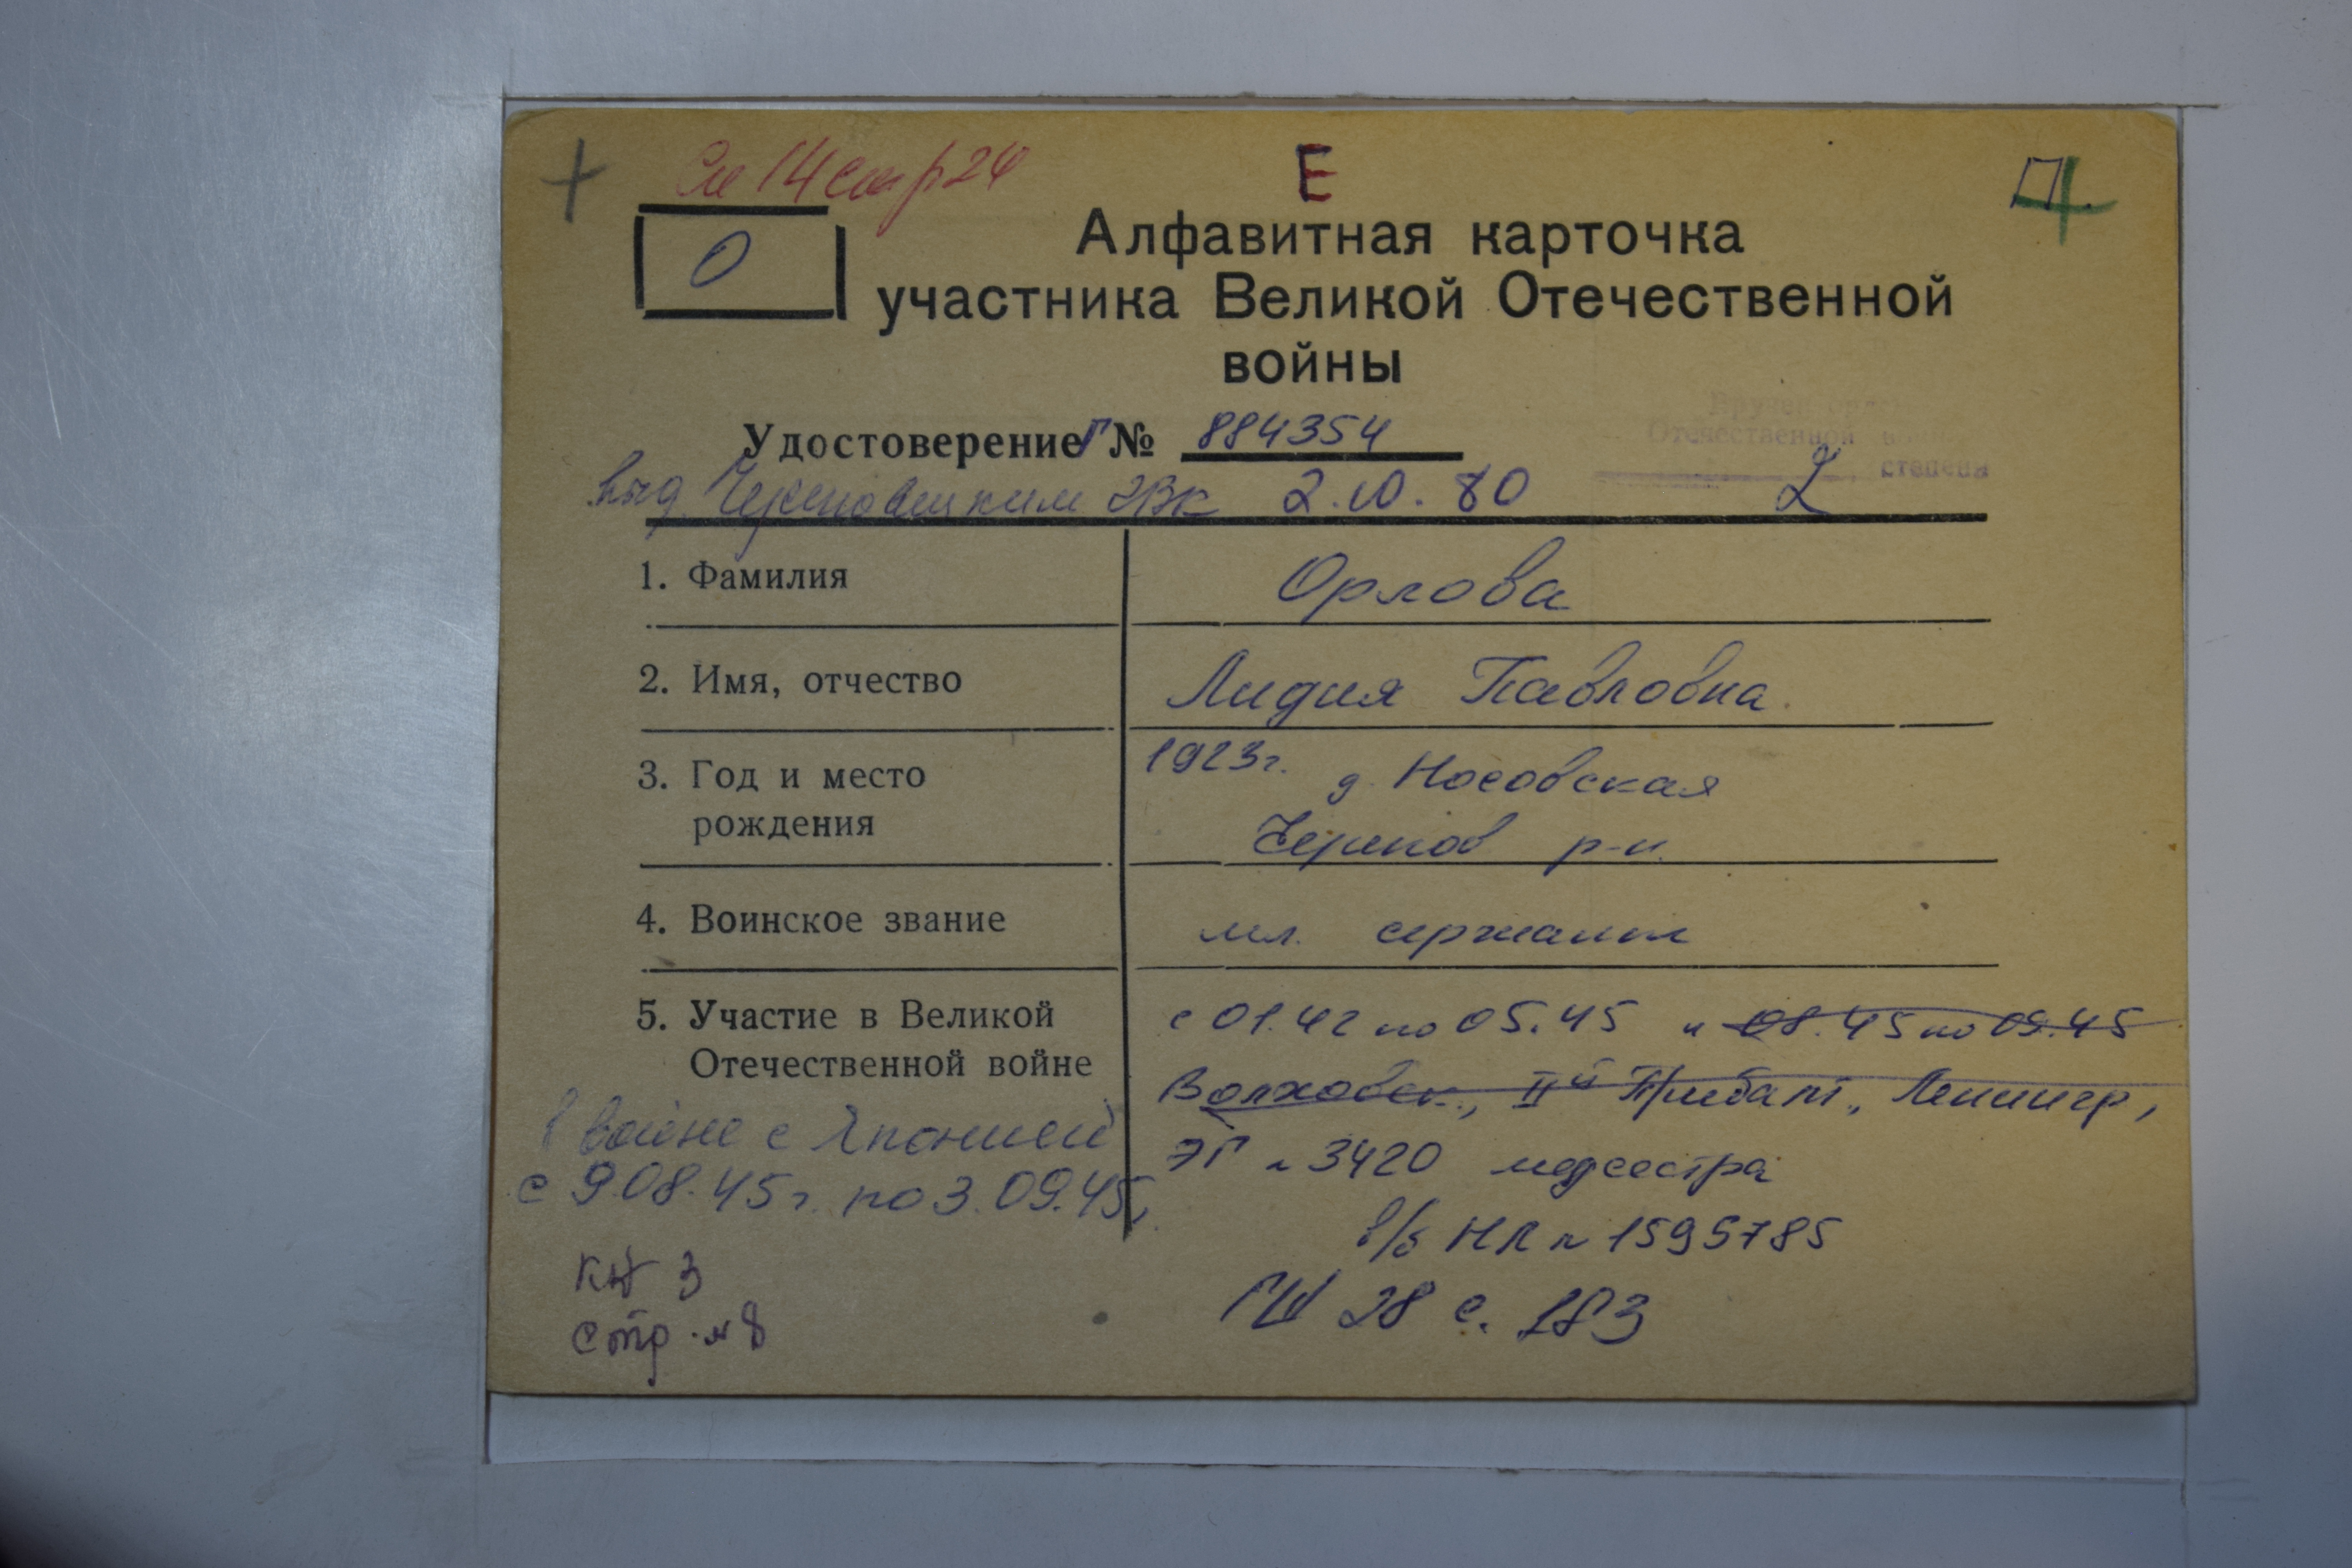 + Сп 14 стр 24 Е П.
О
Алфавитная карточка
участника Великой Отечественной
войны
Вручен орден
Отечественной войны
2 степени
Удостоверение Г № 884354
выд. Череповецким ГВК 2.10.80
1. Фамилия Орлова
2. Имя, отчество Лидия Павловна
3. Год и место 1923г. д. Носовская
рождения Черепов р-н.
4. Воинское звание мл. сержант
5. Участие в Великой с 01.42 по 05.45 и 08.45 по 09.45
Отечественной войне Волховск., IIй Прибалт., Ленингр,
в войне с Японией ЭГ № 3420 медсестра
с 9.08.45г. по 3.09.45г. в/б НЛ № 1595785
КН 3 ГШ 28 с. 183
стр. № 8